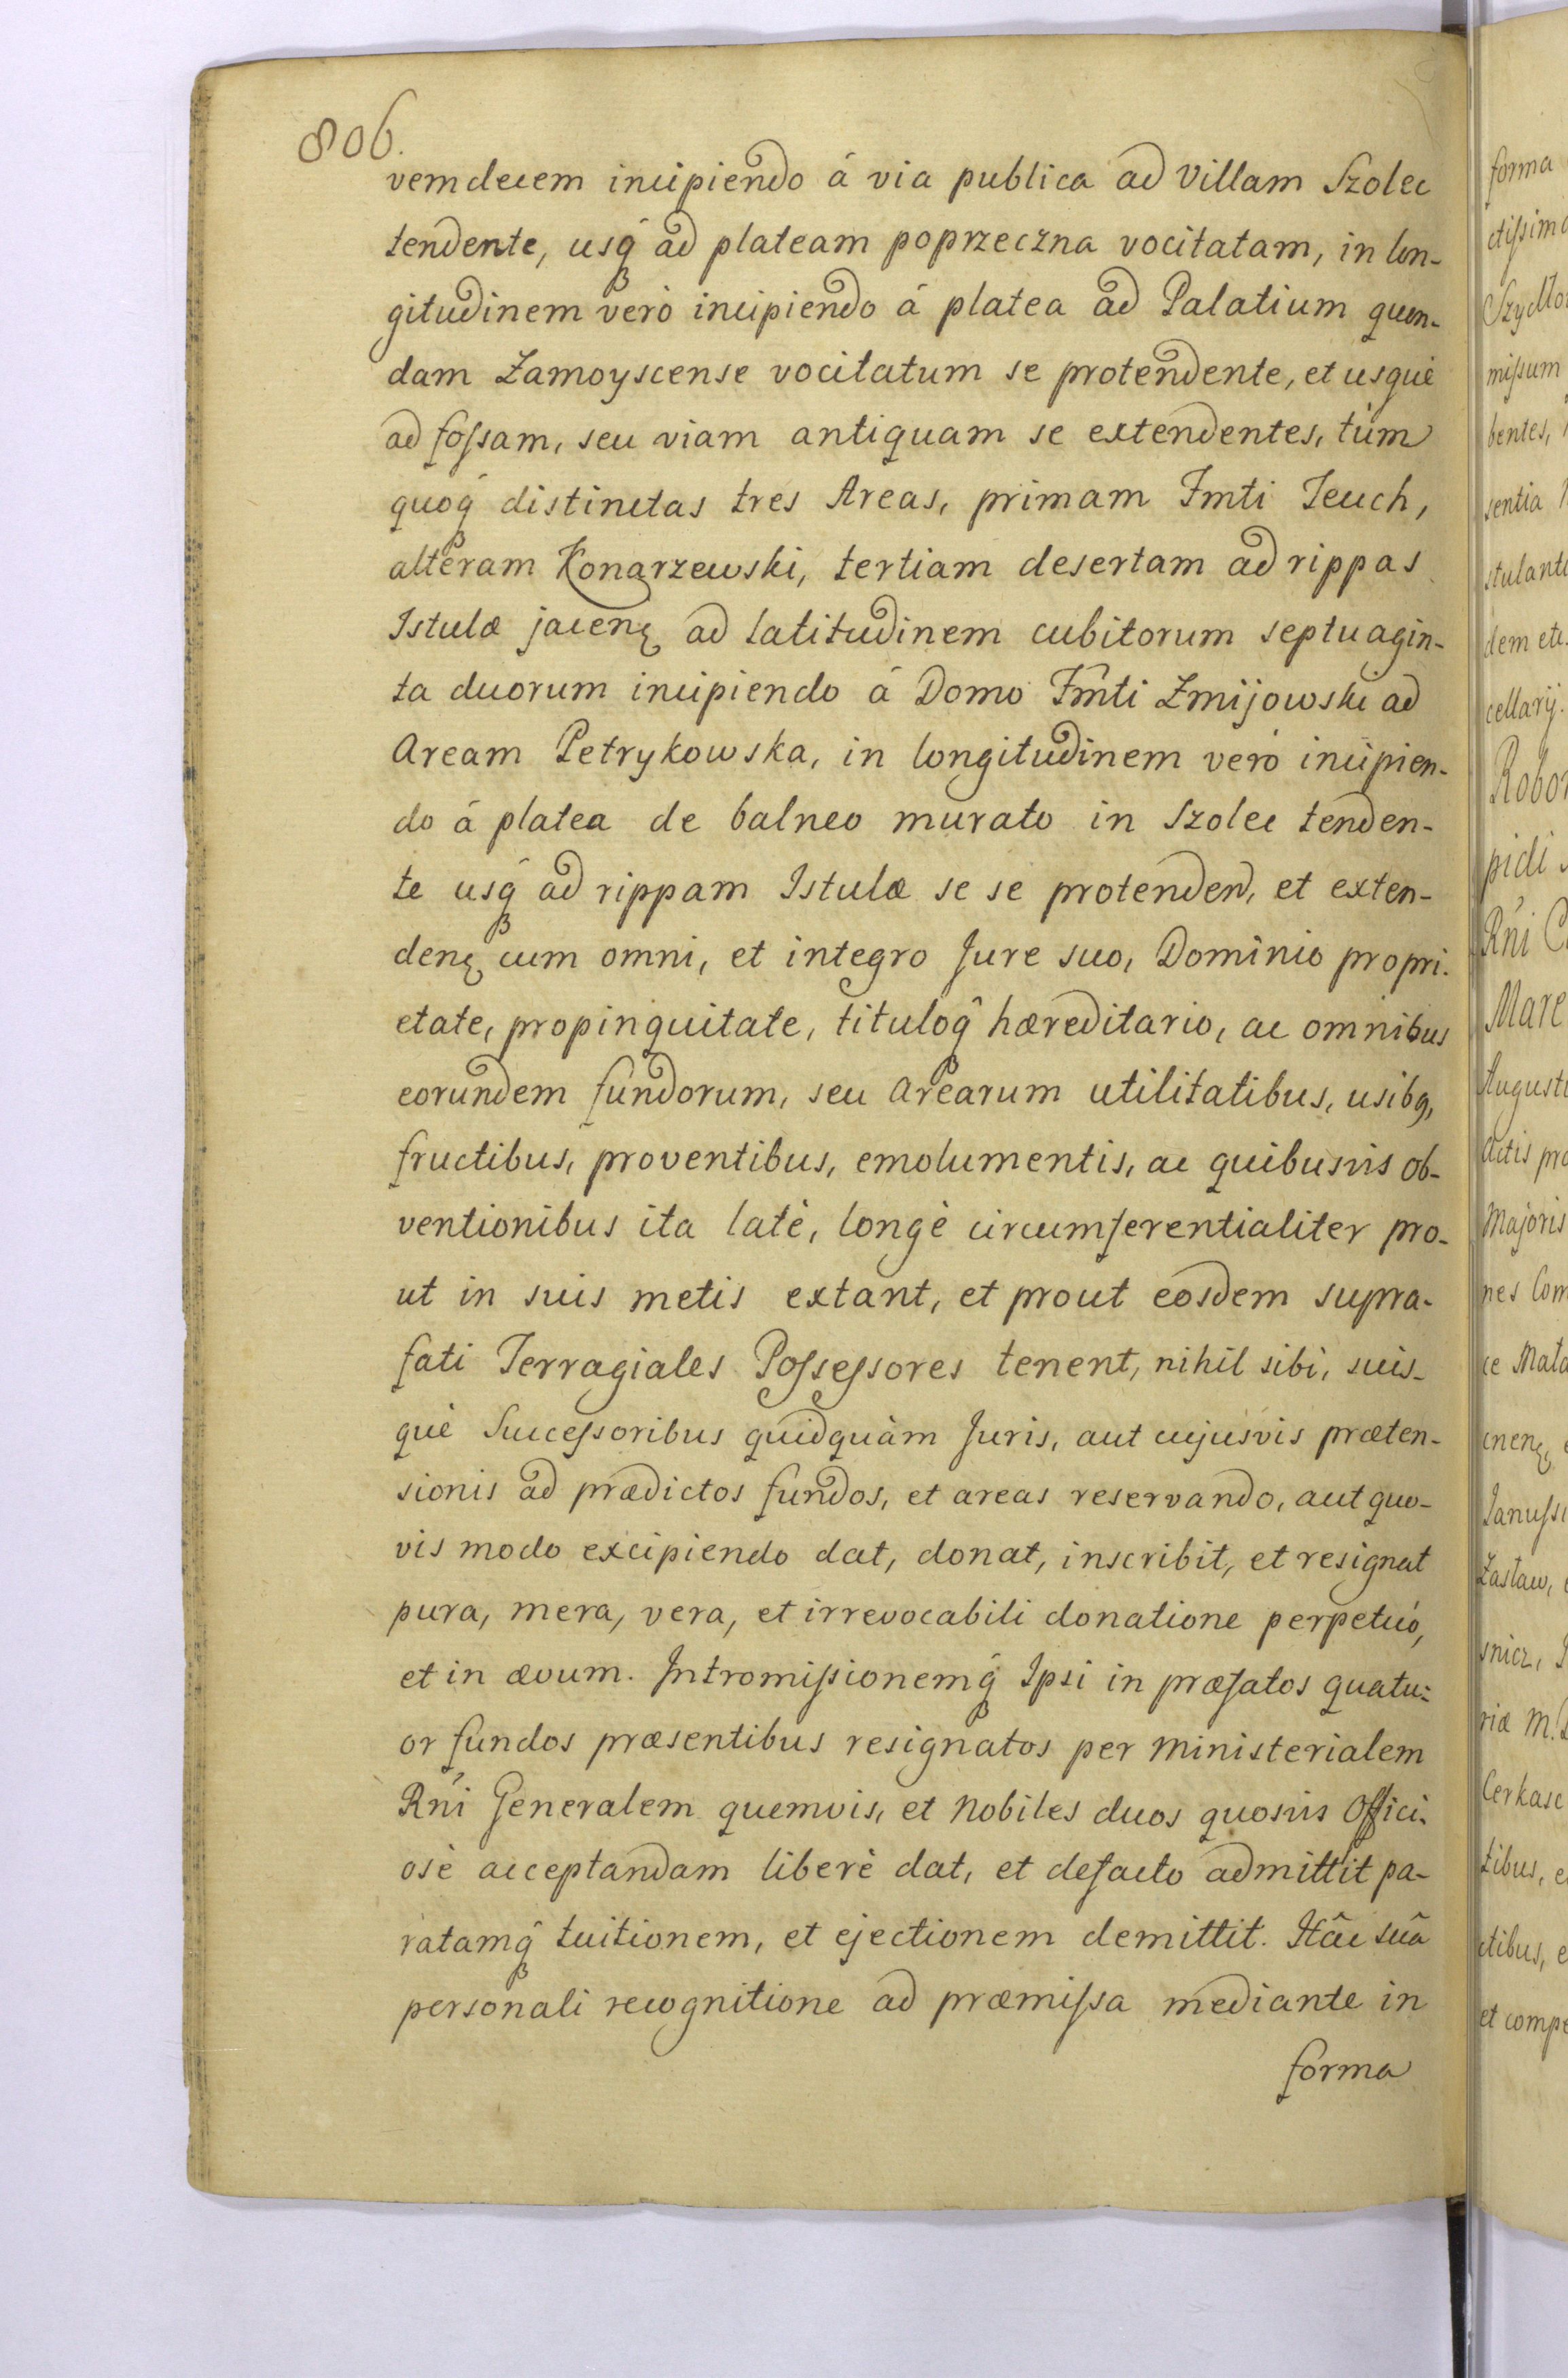 806.
vemdecem incipiendo á via publica ad Villam Szolec
tendente, usq́ ad plateam poprzeczna vocitatam, in lon-
gitudinem verò incipiendo á platea ad Palatium quon-
dam Zamoyscense vocitatum se protendente, et usquè
ad foſsam, seu viam antiquam se extendentes, tùm
quoq́ distinctas tres Areas, primam Fmti Teuch,
alteram Konarzewski, tertiam desertam ad rippas
Istulæ jacenę ad latitudinem cubitorum septuagin-
ta duorum incipiendo á Domo Fm̂ti Zmijowski ad
Aream Petrykowska, in longitudinem verò incipien-
do á platea de balneo murato in Szolec tenden-
te usq́ ad rippam Istulæ se se protenden, et exten-
denę cum omni, et integro Jure suo, Dominio propri-
etate, propinquitate, tituloq̂ hæreditario, ac omnibus
eorundem fundorum, seu Arearum utilitatibus, usibq,
fructibus, proventibus, emolumentis, ac quibusvis ob-
ventionibus ita latè, longè circumferentialiter pro-
ut in suis metis extant, et prout eosdem supra-
fati Terragiales Poſseſsores tenent, nihil sibi, suis-
què Succeſsoribus quidquàm Juris, aut cujusvis præten-
sionis ad prædictos fundos, et areas reservando, aut quo-
vis modo excipiendo dat, donat, inscribit, et resignat
pura, mera, vera, et irrevocabili donatione perpetuó,
et in ævum. Intromiſsionemq̂ Ipsi in præfatos quatu-
or fundos præsentibus resignatos per Ministerialem
Rńi Generalem quemvis, et Nobiles duos quosvis Offici-
osè acceptandam liberè dat, et defacto admittit pa-
ratamq̂ tuitionem, et ejectionem demittit. Hâc suâ
personali recognitione ad præmiſsa mediante in
forma